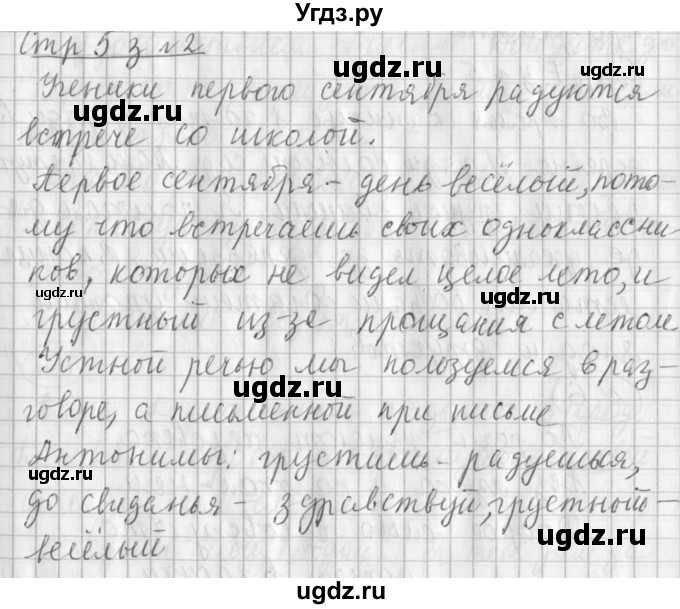 Угдз.ру
Стр 5 з №2
Ученики первого сентября радуются
встрече со школой.
Первое сентября - день весёлый, пото-
му что встречаешь своих одноклассни
ков, которых не видел целое лето, и
грустный из-за прощания с летом
Устной речью мы пользуемся в раз-
говоре, а письменной при письме
Антонимы: грустишь - радуешься,
до свиданья - здравствуй, грустный -
весёлый
ugdz.ru
ugdz.ru
ugdz.ru
ugdz.ru
ugdz.ru
ugdz.ru
ugdz.ru
ugdz.ru
ugdz.ru
ugdz.ru
ugdz.ru